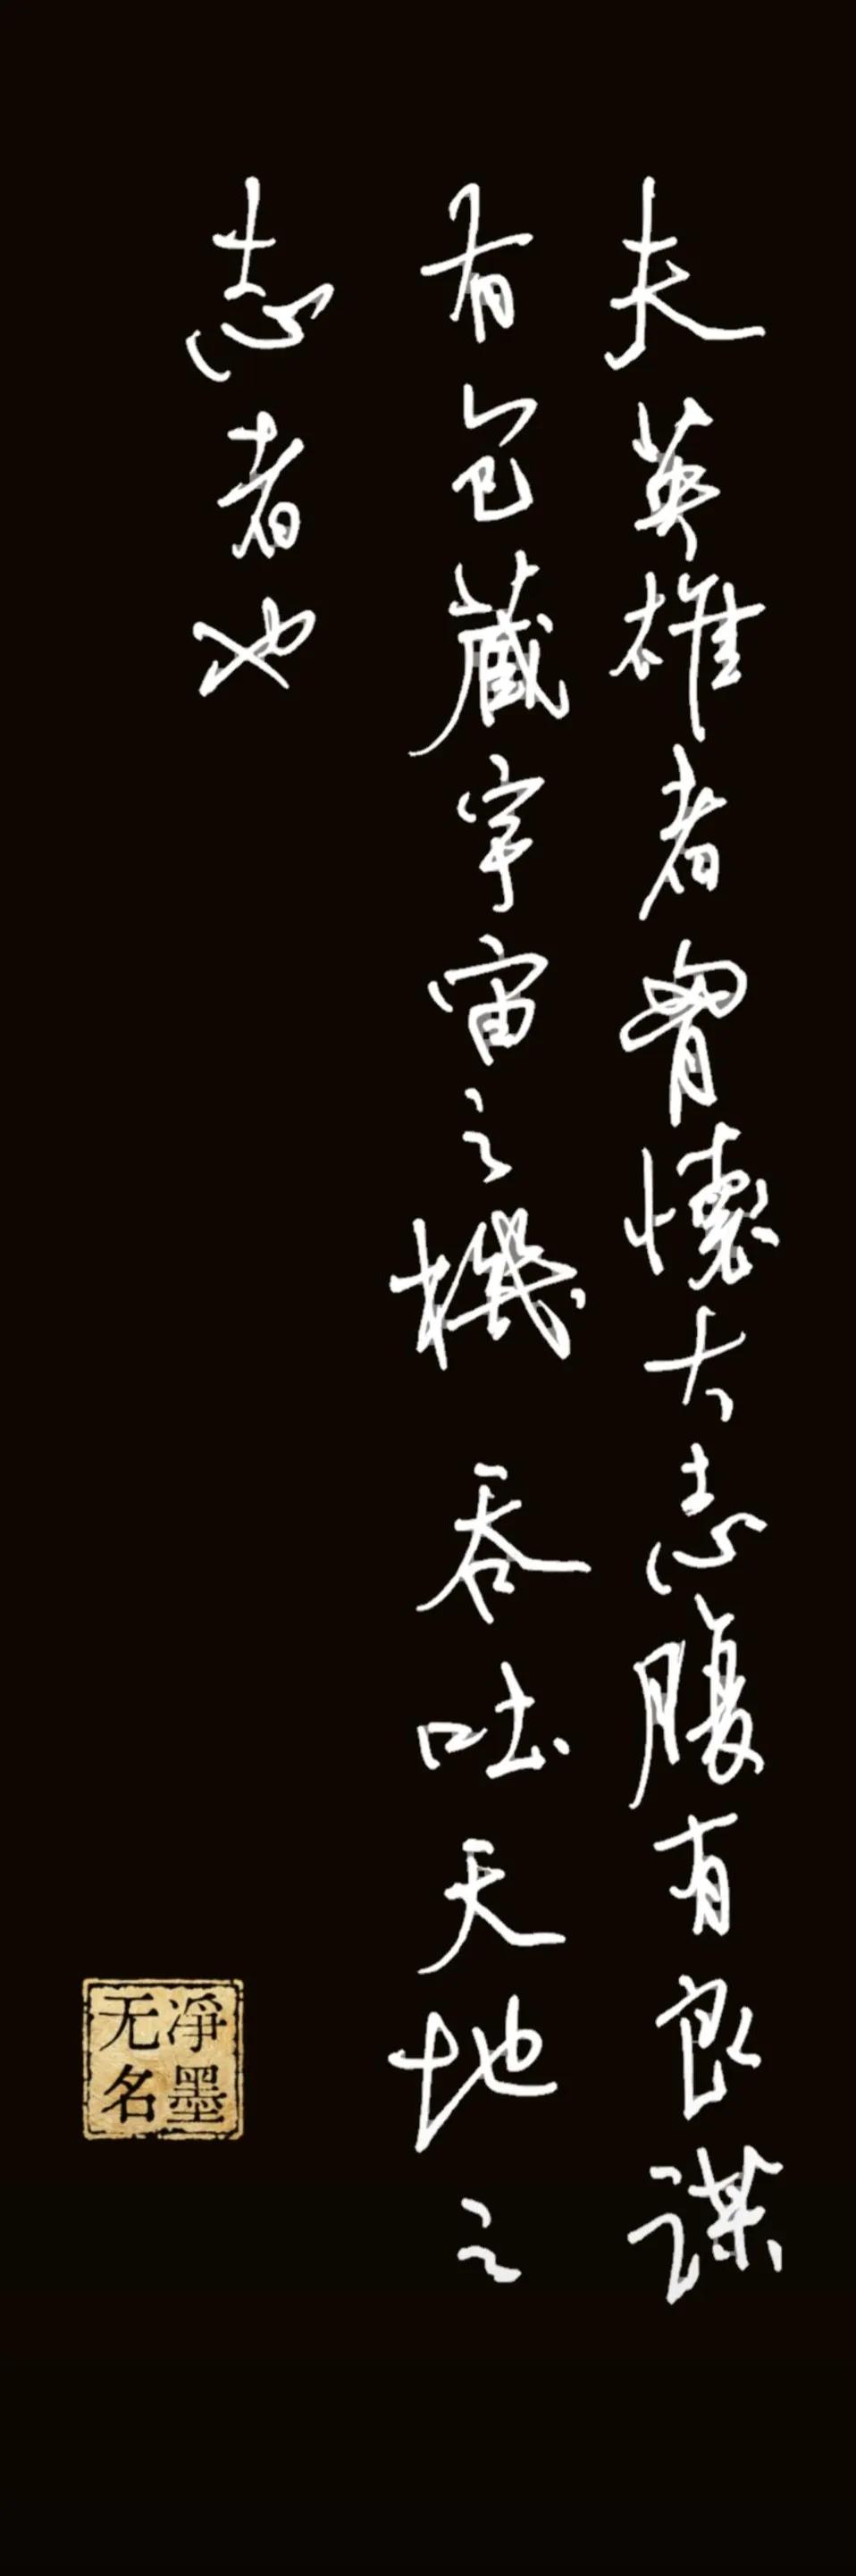 夫英雄者胷懷大志腹有良謀
有包藏宇宙之機 吞吐天地之
志者也
净墨
无名